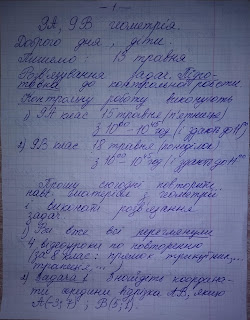 - 1 -
9А, 9В геометрія.
Доброго дня, діти.
Пишемо: 15 травня
Розв'язування задач. Підго-
товка до контрольної роботи.
Контрольну роботу виконують
1) 9А клас 15 травня (п'ятниця)
з 10⁰⁰ - 10⁴⁵ (і здати до 11⁰⁰
2) 9В клас 18 травня (понеділок)
з 10⁰⁰ - 10⁴⁵ год (і здати до 11⁰⁰
Прошу сьогодні повторити
матеріал з геометрії
і виконати розв'язування
задач.
1) Ви вже всі переглянули
4 відеоуроки по повторенню
(за 8 клас: прямок. трикутник,
трапеція, ...)
2) Задача 1. Знайдіть координа-
ти середини відрізка АВ, якщо
А(-3; 4); В(5; 1).